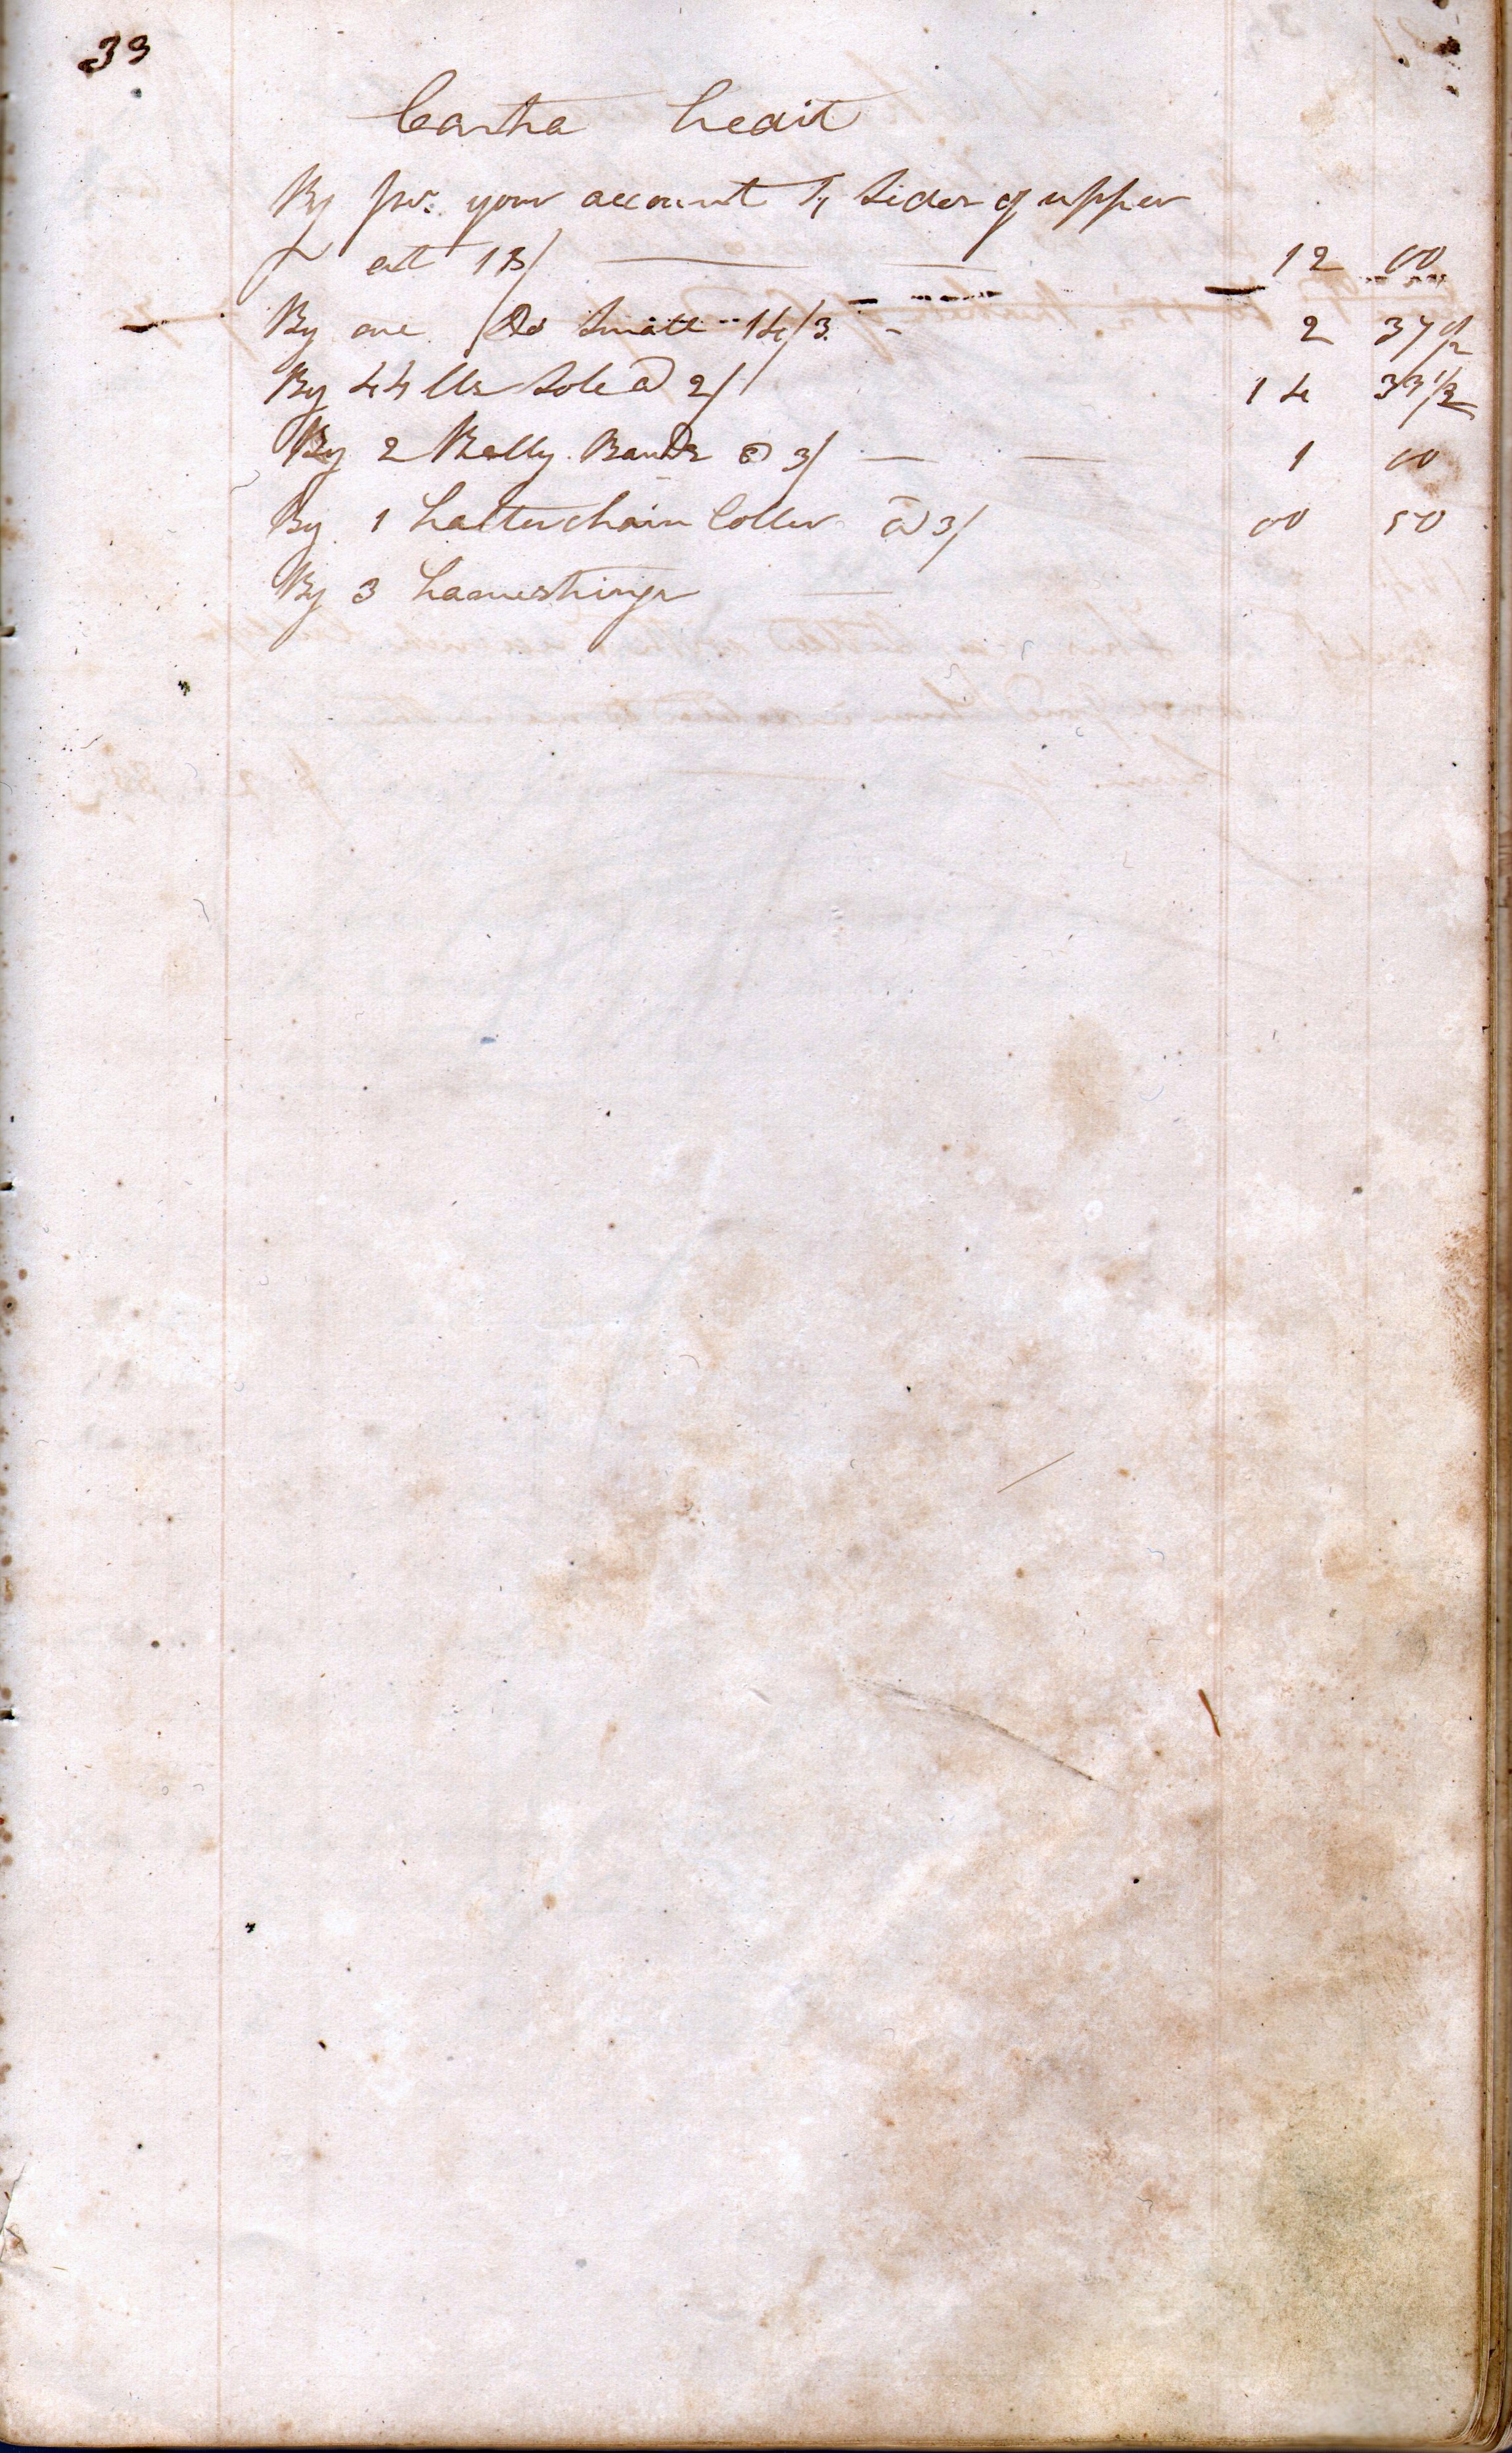 33
Contra Credit
By pr. your account 4 sides of upper
at 18/ 12 00
By one Do small 14/3 2 37 1/2
By 44 lbs sole @ 2/ 14 33 1/3
By 2 Belly Bands @ 3/ 1 00
By 1 halter chain Coller @ 3/ 00 50
By 3 hamestrings